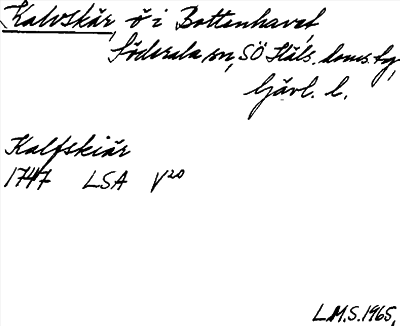 Kalvskär, ö i Bottenhavet,
Söderala sn, SÖ Häls. doms. tg,
Gävl. l.
Kalfskiär
1747 LSA V20
L.M.S. 1965.